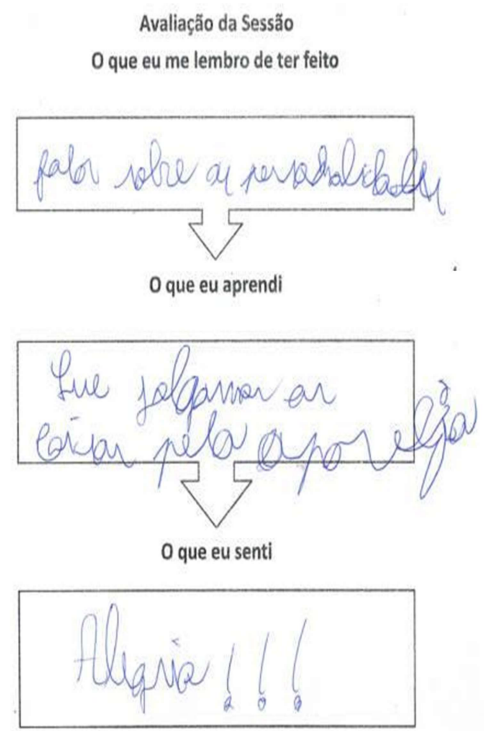 Avaliação da Sessão
O que eu me lembro de ter feito
falar sobre as personalidades
O que eu aprendi
Que julgamos as
coisas pela
O que eu senti
Alegria !!!